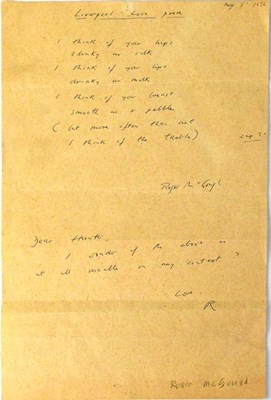 Liverpool love poem
May 5 1971
I think of your hips
slinky as silk
I think of your lips
drinking in milk
I think of your breast
smooth as a pebble
(but more often than not
I think of the trouble)
Roger McGough
Dear
I wonder if the above is
at all usable in any context?
Love
R
Roger McGough